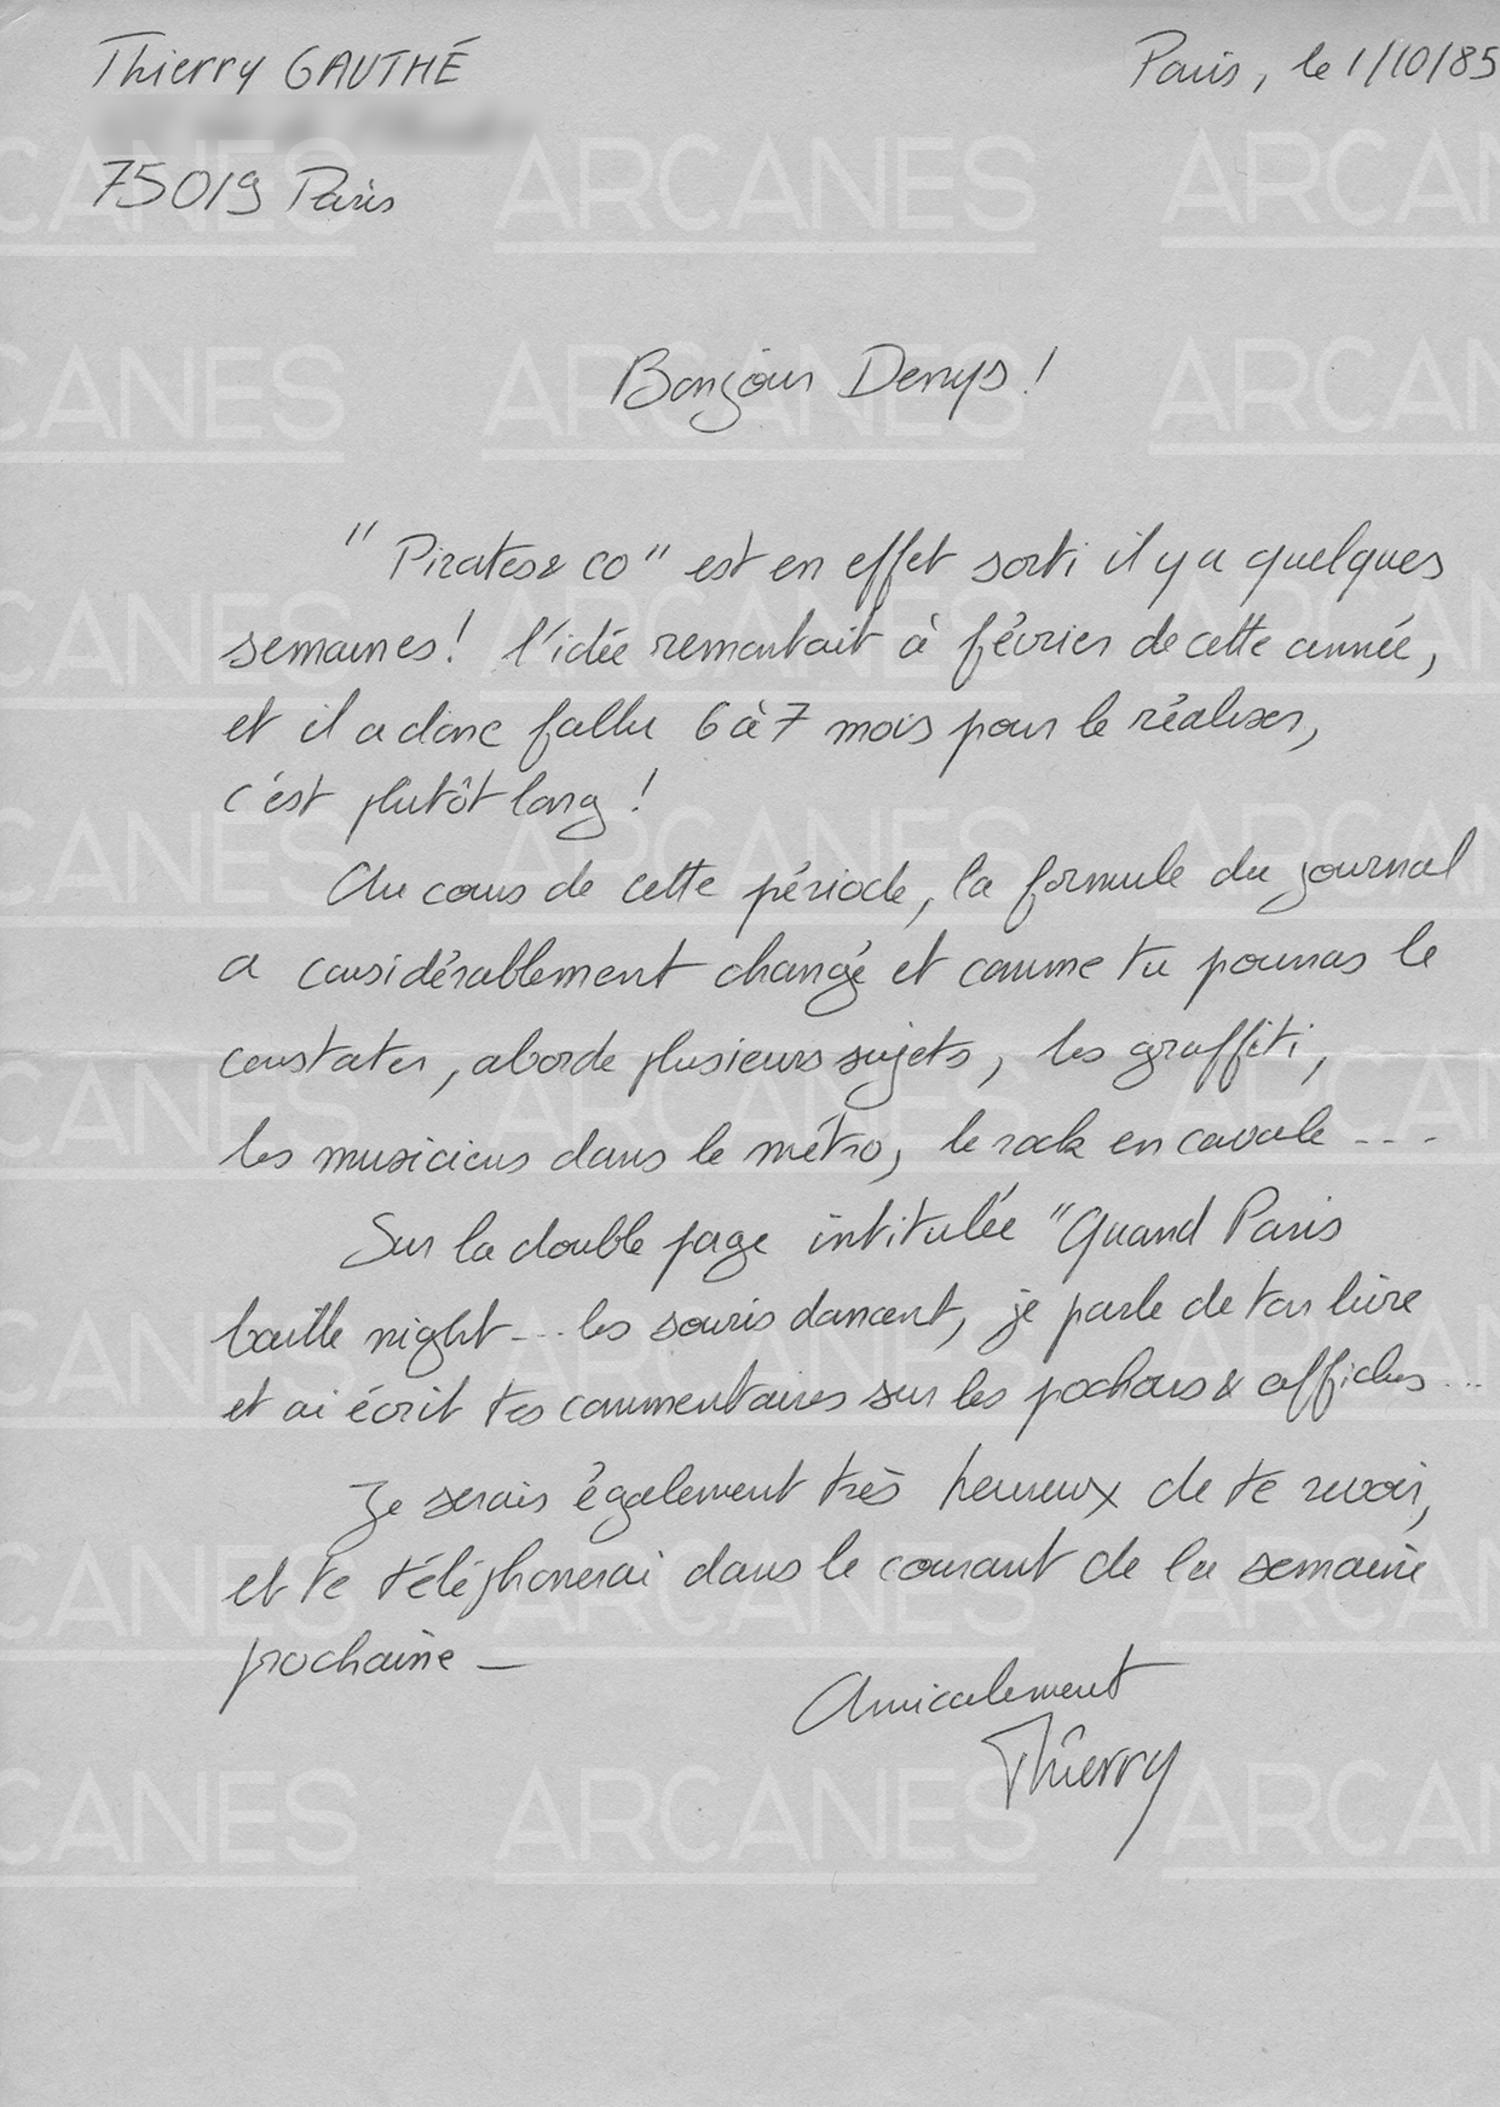 Thierry GAUTHÉ
Paris, le 1/10/85
75019 Paris
Bonjour Denys !
"Pirates & co" est en effet sorti il y a quelques
semaines ! l'idée remontait à février de cette année,
et il a donc fallu 6 à 7 mois pour le réaliser,
c'est plutôt long !
Au cours de cette période, la formule du journal
a considérablement changé et comme tu pourras le
constater, aborde plusieurs sujets, les graffiti,
les musiciens dans le métro, le rock en cavale ....
Sur la double page intitulée "Quand Paris
bouille night... les souris dansent, je parle de ton livre
et ai écrit tes commentaires sur les pochoirs & affiches ...
Je serais également très heureux de te revoir,
et te téléphonerai dans le courant de la semaine
prochaine —
Amicalement
Thierry
ARCANES